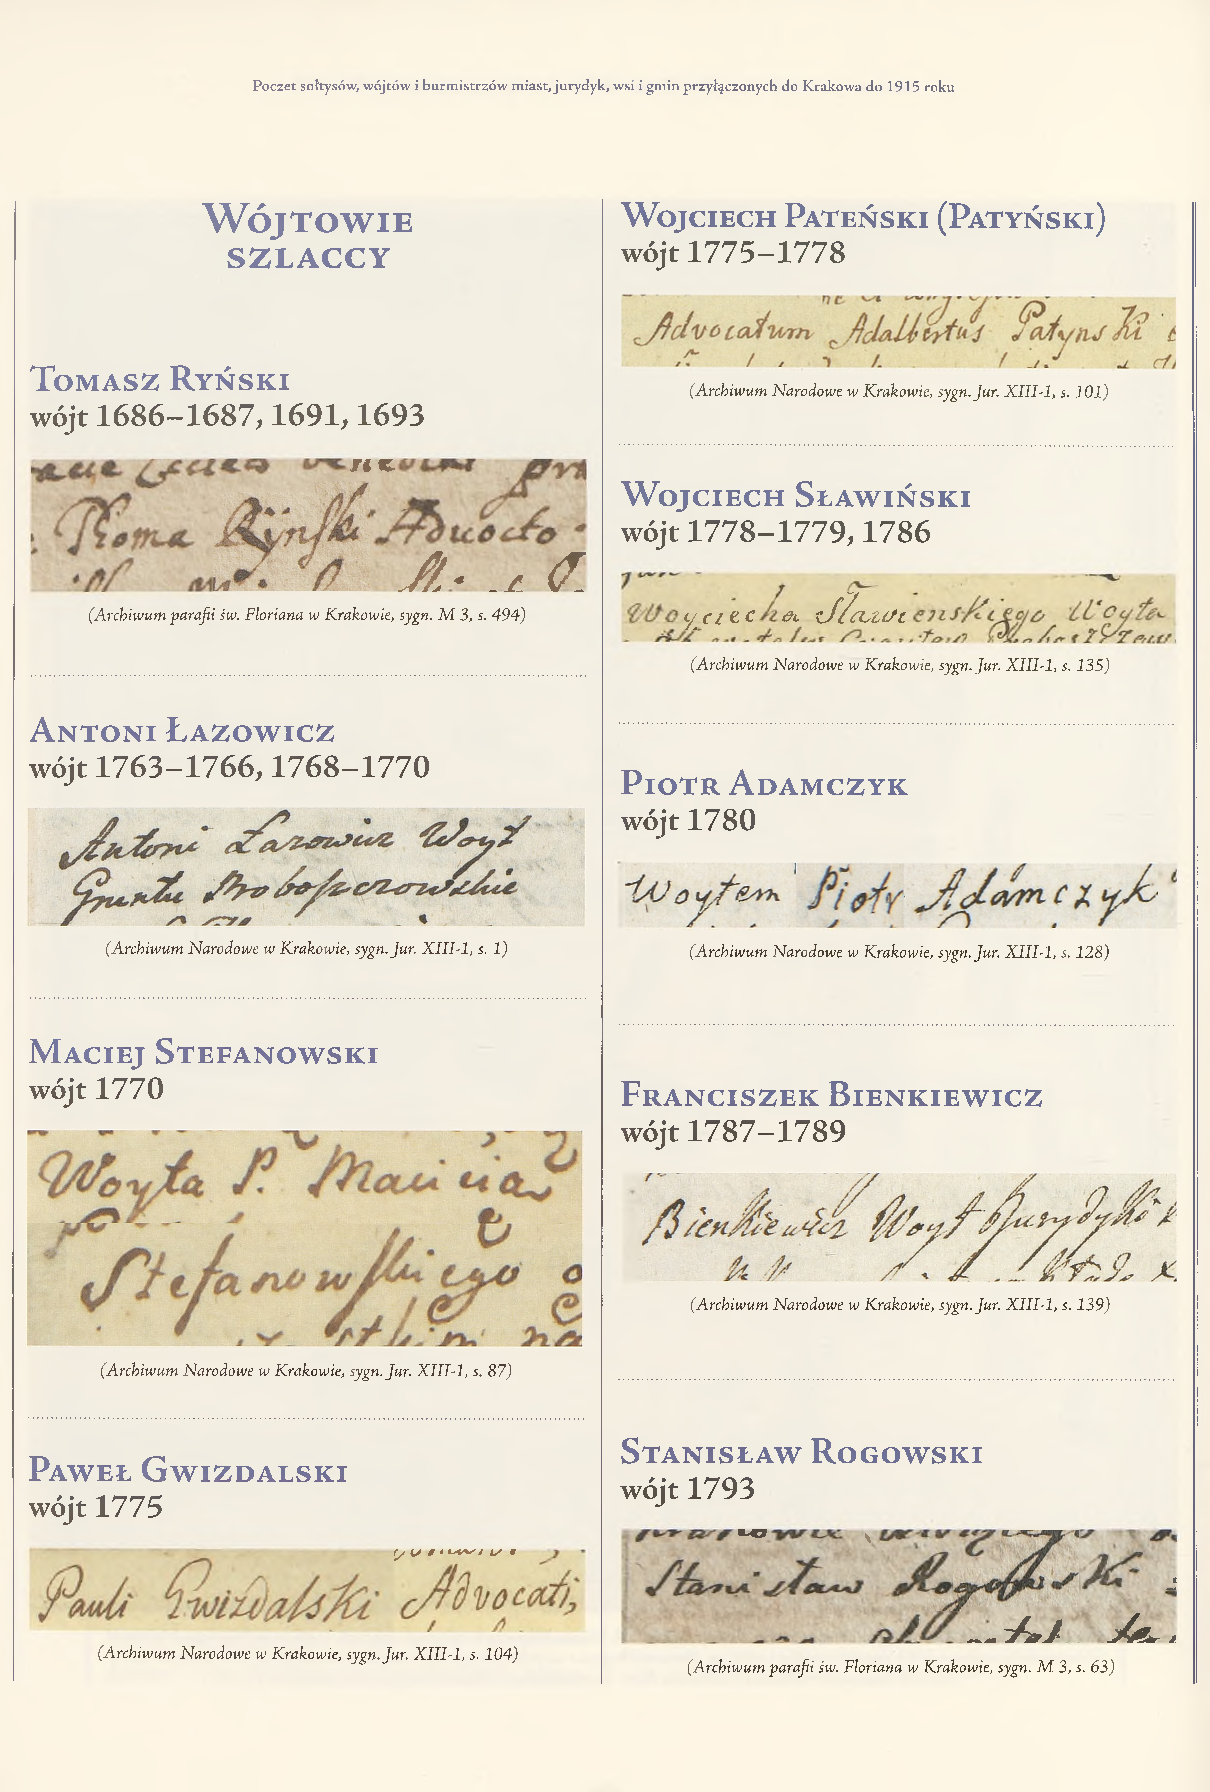 Poczet sołtysów, wójtów i burmistrzów miast, jurydyk, wsi i gmin przyłączonych do Krakowa do 1915 roku
Wójtowie
szlaccy
Tomasz Ryński
wójt 1686–1687, 1691, 1693
Thoma Ryński Advocto
(Archiwum parafii św. Floriana w Krakowie, sygn. M 3, s. 494)
Antoni Łazowicz
wójt 1763–1766, 1768–1770
Antoni Łazowicz Woyt
Gruntu Proboszczowskie
(Archiwum Narodowe w Krakowie, sygn. Jur. XIII-1, s. 1)
Maciej Stefanowski
wójt 1770
Woyta P. Macieia
Stefanowskiego
(Archiwum Narodowe w Krakowie, sygn. Jur. XIII-1, s. 87)
Paweł Gwizdalski
wójt 1775
Pauli Gwizdalski Advocati,
(Archiwum Narodowe w Krakowie, sygn. Jur. XIII-1, s. 104)
Wojciech Pateński (Patyński)
wójt 1775–1778
Advocatum Adalbertus Patynski
(Archiwum Narodowe w Krakowie, sygn. Jur. XIII-1, s. 101)
Wojciech Sławiński
wójt 1778–1779, 1786
Woyciecha Sławienskiego Woyta
(Archiwum Narodowe w Krakowie, sygn. Jur. XIII-1, s. 135)
Piotr Adamczyk
wójt 1780
Woytem Piotr Adamczyk
(Archiwum Narodowe w Krakowie, sygn. Jur. XIII-1, s. 128)
Franciszek Bienkiewicz
wójt 1787–1789
Bienkiewicz Woyt Jurydyki
(Archiwum Narodowe w Krakowie, sygn. Jur. XIII-1, s. 139)
Stanisław Rogowski
wójt 1793
Stanisław Rogowski
(Archiwum parafii św. Floriana w Krakowie, sygn. M 3, s. 63)